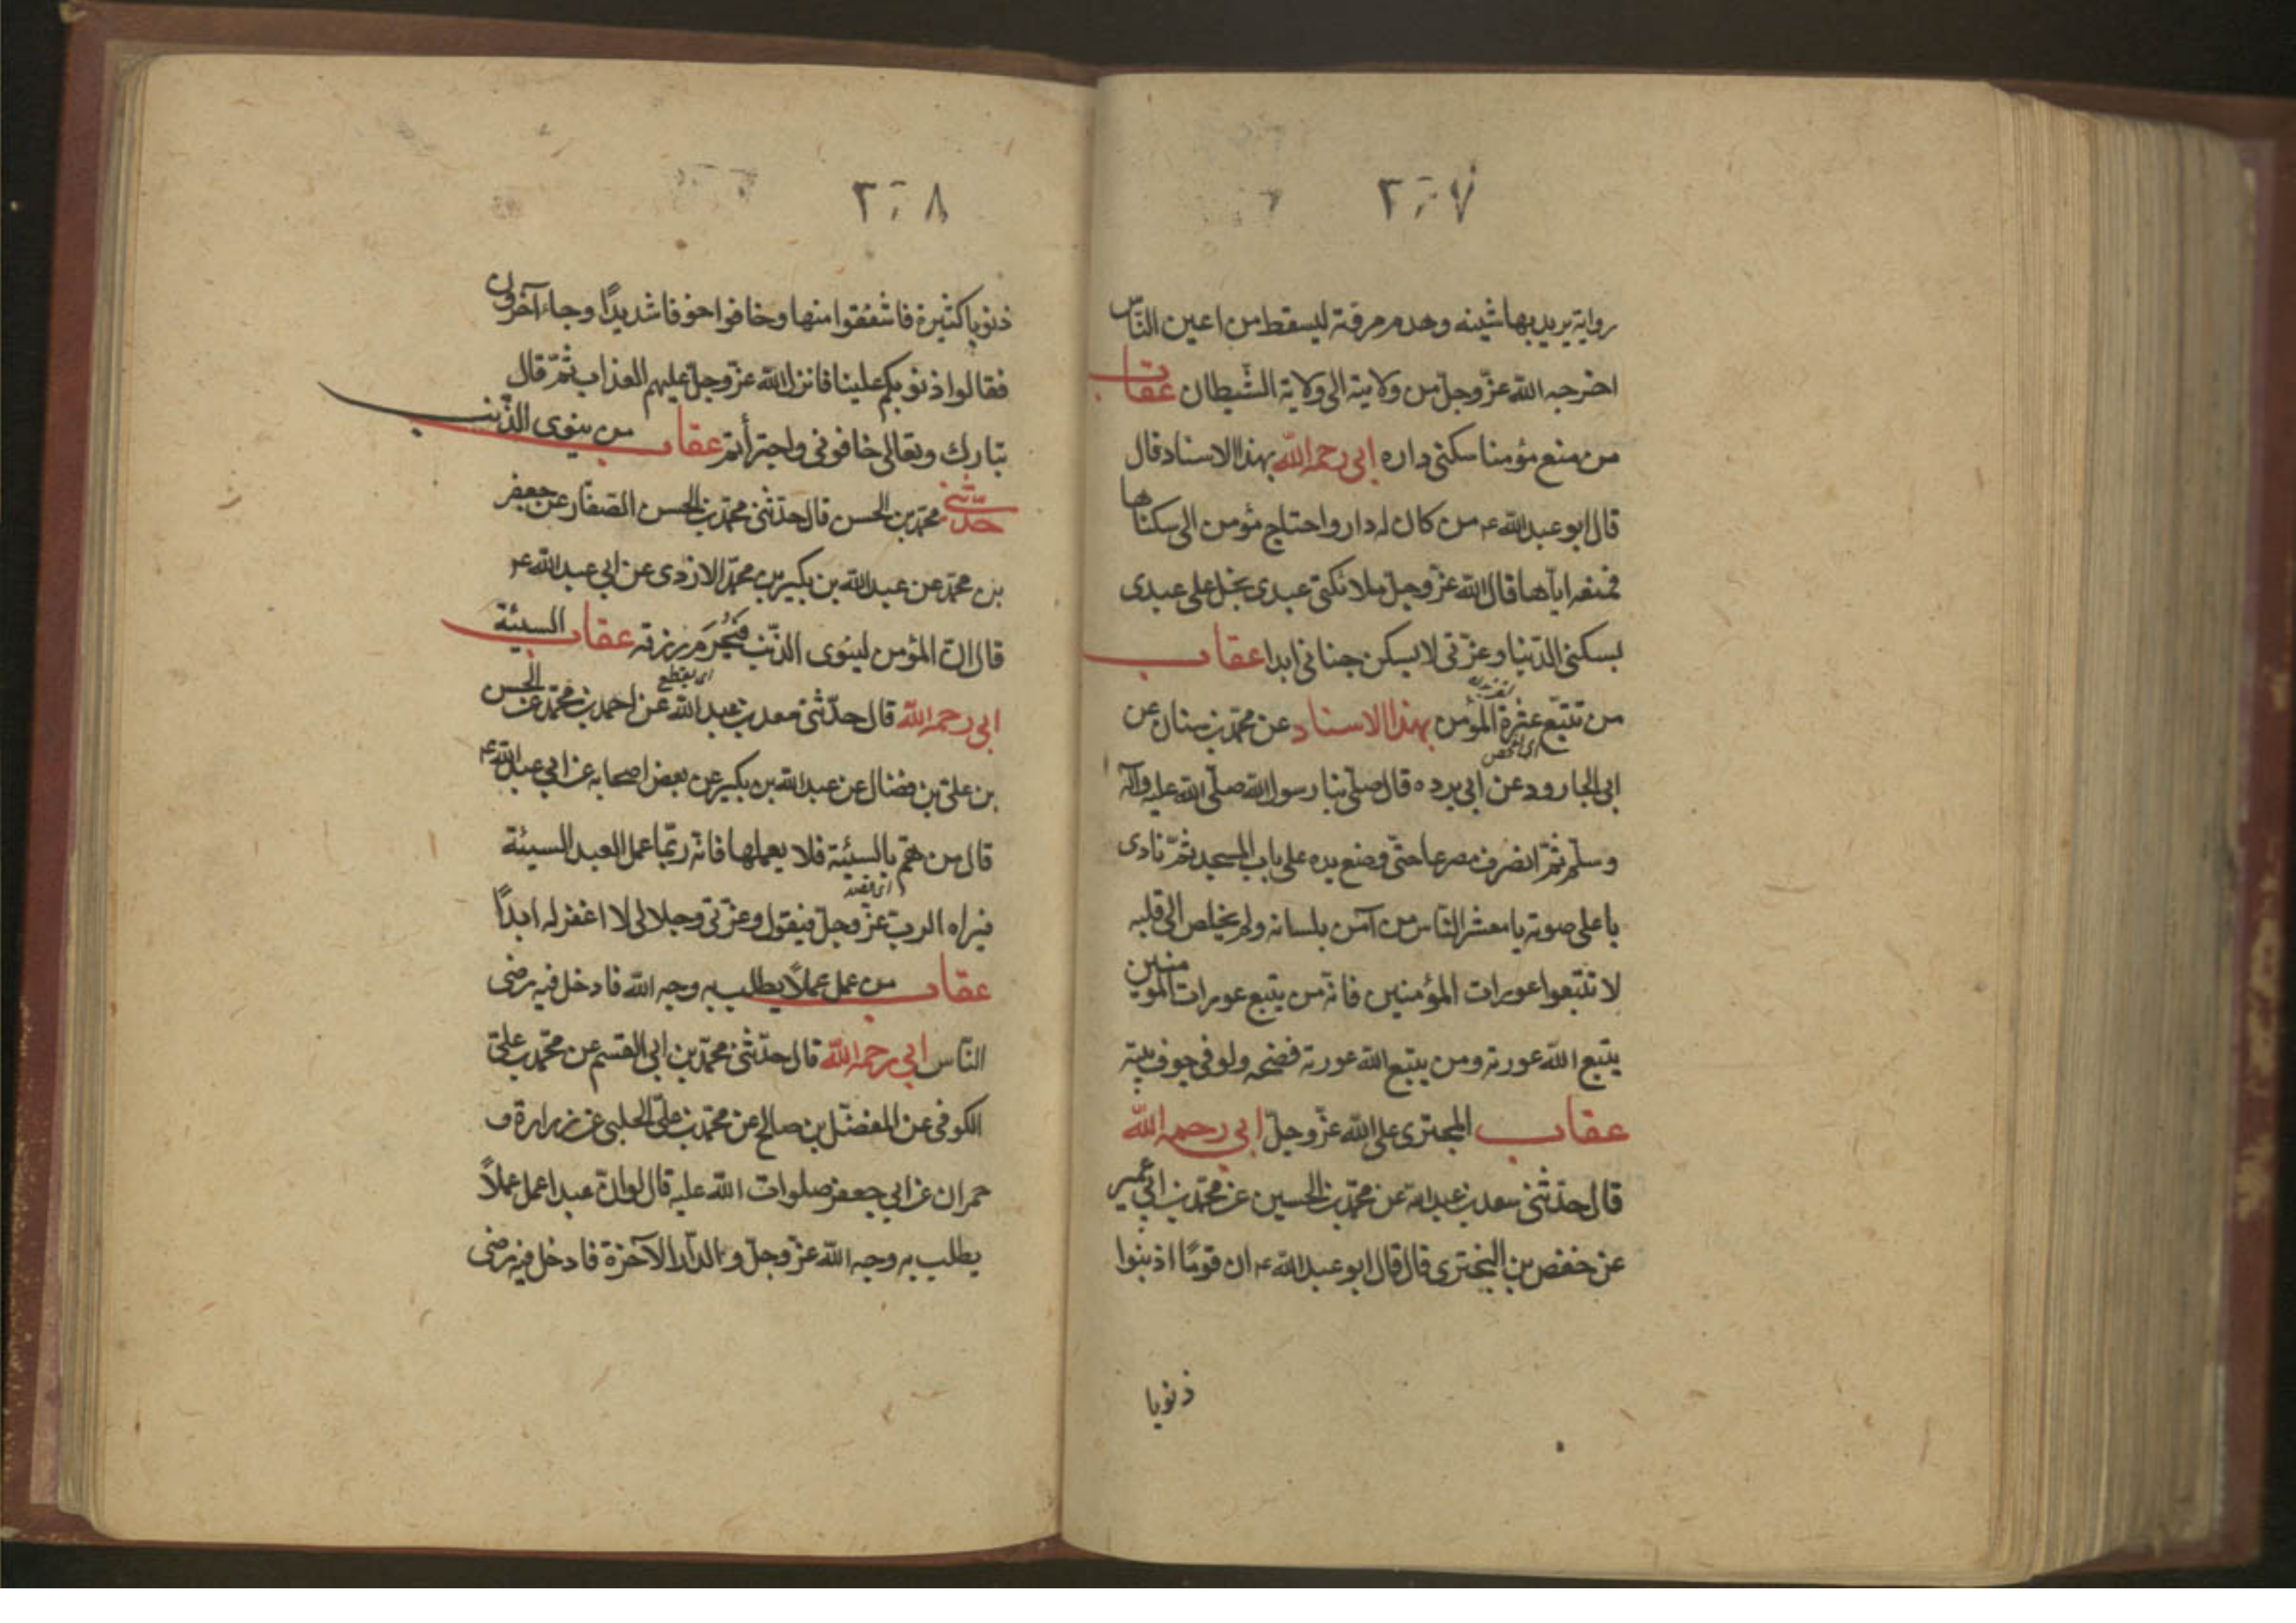 ٢٠٧
رواية يريد بها شينه وهدم مروته ليسقط من اعين النّاس
اخرجه الله عزّ وجلّ من ولايته الى ولاية الشّيطان عقاب
من منع مؤمنا سكنى داره ابى رحمه الله بهذا الاسناد قال
قال ابو عبد الله ع من كان له دار واحتاج مؤمن الى سكناها
فمنعه ايّاها قال الله عزّ وجلّ ملائكتى عبدى بخل على عبدى
بسكنى الدّنيا وعزّتى لا يسكن جنانى ابدا عقاب
من تتبّع عثرة المؤمن بهذا الاسناد عن محمّد بن سنان عن
ابى الجارود عن ابى برده قال صلّى بنا رسول الله صلّى الله عليه وآله
وسلّم ثمّ انصرف مسرعا حتّى وضع يده على باب المسجد ثمّ نادى
باعلى صوته يا معشر النّاس من آمن بلسانه ولم يخلص الى قلبه
لا تتّبعوا عورات المؤمنين فانّه من يتبع عورات المؤمنين
يتبع الله عورته ومن يتبع الله عورته فضحه ولو فى جوف بيته
عقاب المجترى على الله عزّ وجلّ ابى رحمه الله
قال حدّثنى سعد بن عبد الله عن محمّد بن الحسين عن محمّد بن ابى عمير
عن حفص بن البخترى قال قال ابو عبد الله ع ان قومًا اذنبوا
ذنوبا
٢٠٨
ذنوبا كثيرة فاشفقوا منها وخافوا خوفا شديدًا وجاء آخرون
فقالوا ذنوبكم علينا فانزل الله عزّ وجلّ عليهم العذاب ثمّ قال
تبارك وتعالى خافونى واجترأتم عقاب من ينوى الذّنب
حدّثنى محمّد بن الحسن قال حدّثنى محمّد بن الحسن الصّفّار عن جعفر
بن محمّد عن عبد الله بن بكير بن محمّد الازدى عن ابى عبد الله ع
قال انّ المؤمن لينوى الذّنب فيُحرَم رزقه عقاب السيئة
ابى رحمه الله قال حدّثنى سعد بن عبد الله عن احمد بن محمّد عن الحسن
بن علىّ بن فضّال عن عبد الله بن بكير عن بعض اصحابه عن ابى عبد الله ع
قال من همّ بالسيّئة فلا يعملها فانّه ربّما عمل العبد السيئة
فيراه الربّ عزّ وجلّ فيقول وعزّتى وجلالى لا اغفر له ابدًا
عقاب من عمل عملًا يطلب به وجه الله فادخل فيه رضى
النّاس ابى رحمه الله قال حدّثنى محمّد بن ابى القسم عن محمّد بن علىّ
الكوفى عن المفضّل بن صالح عن محمّد بن علىّ الحلبى عن زرارة و
حمران عن ابى جعفر صلوات الله عليه قال لو انّ عبدا عمل عملًا
يطلب به وجه الله عزّ وجلّ والدّار الآخرة فادخل فيه رضى